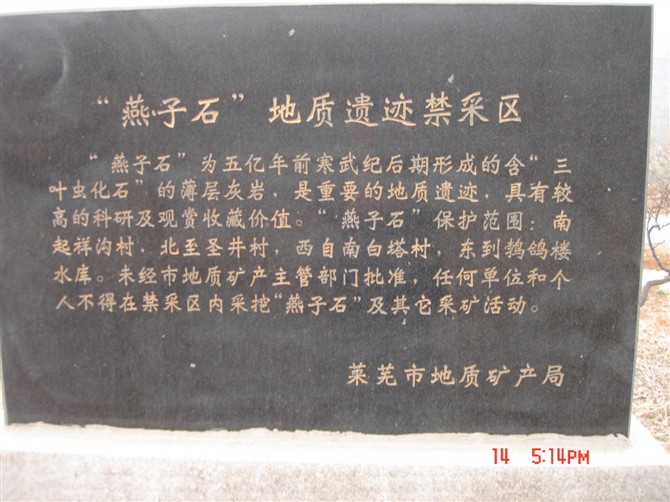 “燕子石”地质遗迹禁采区
“燕子石”为五亿年前寒武纪后期形成的含“三
叶虫化石”的薄层灰岩，是重要的地质遗迹，具有较
高的科研及观赏收藏价值。“燕子石”保护范围：南
起祥沟村，北至圣井村，西自南白塔村，东到鹁鸽楼
水库。未经市地质矿产主管部门批准，任何单位和个
人不得在禁采区内采挖“燕子石”及其它采矿活动。
莱芜市地质矿产局
14 5:14PM